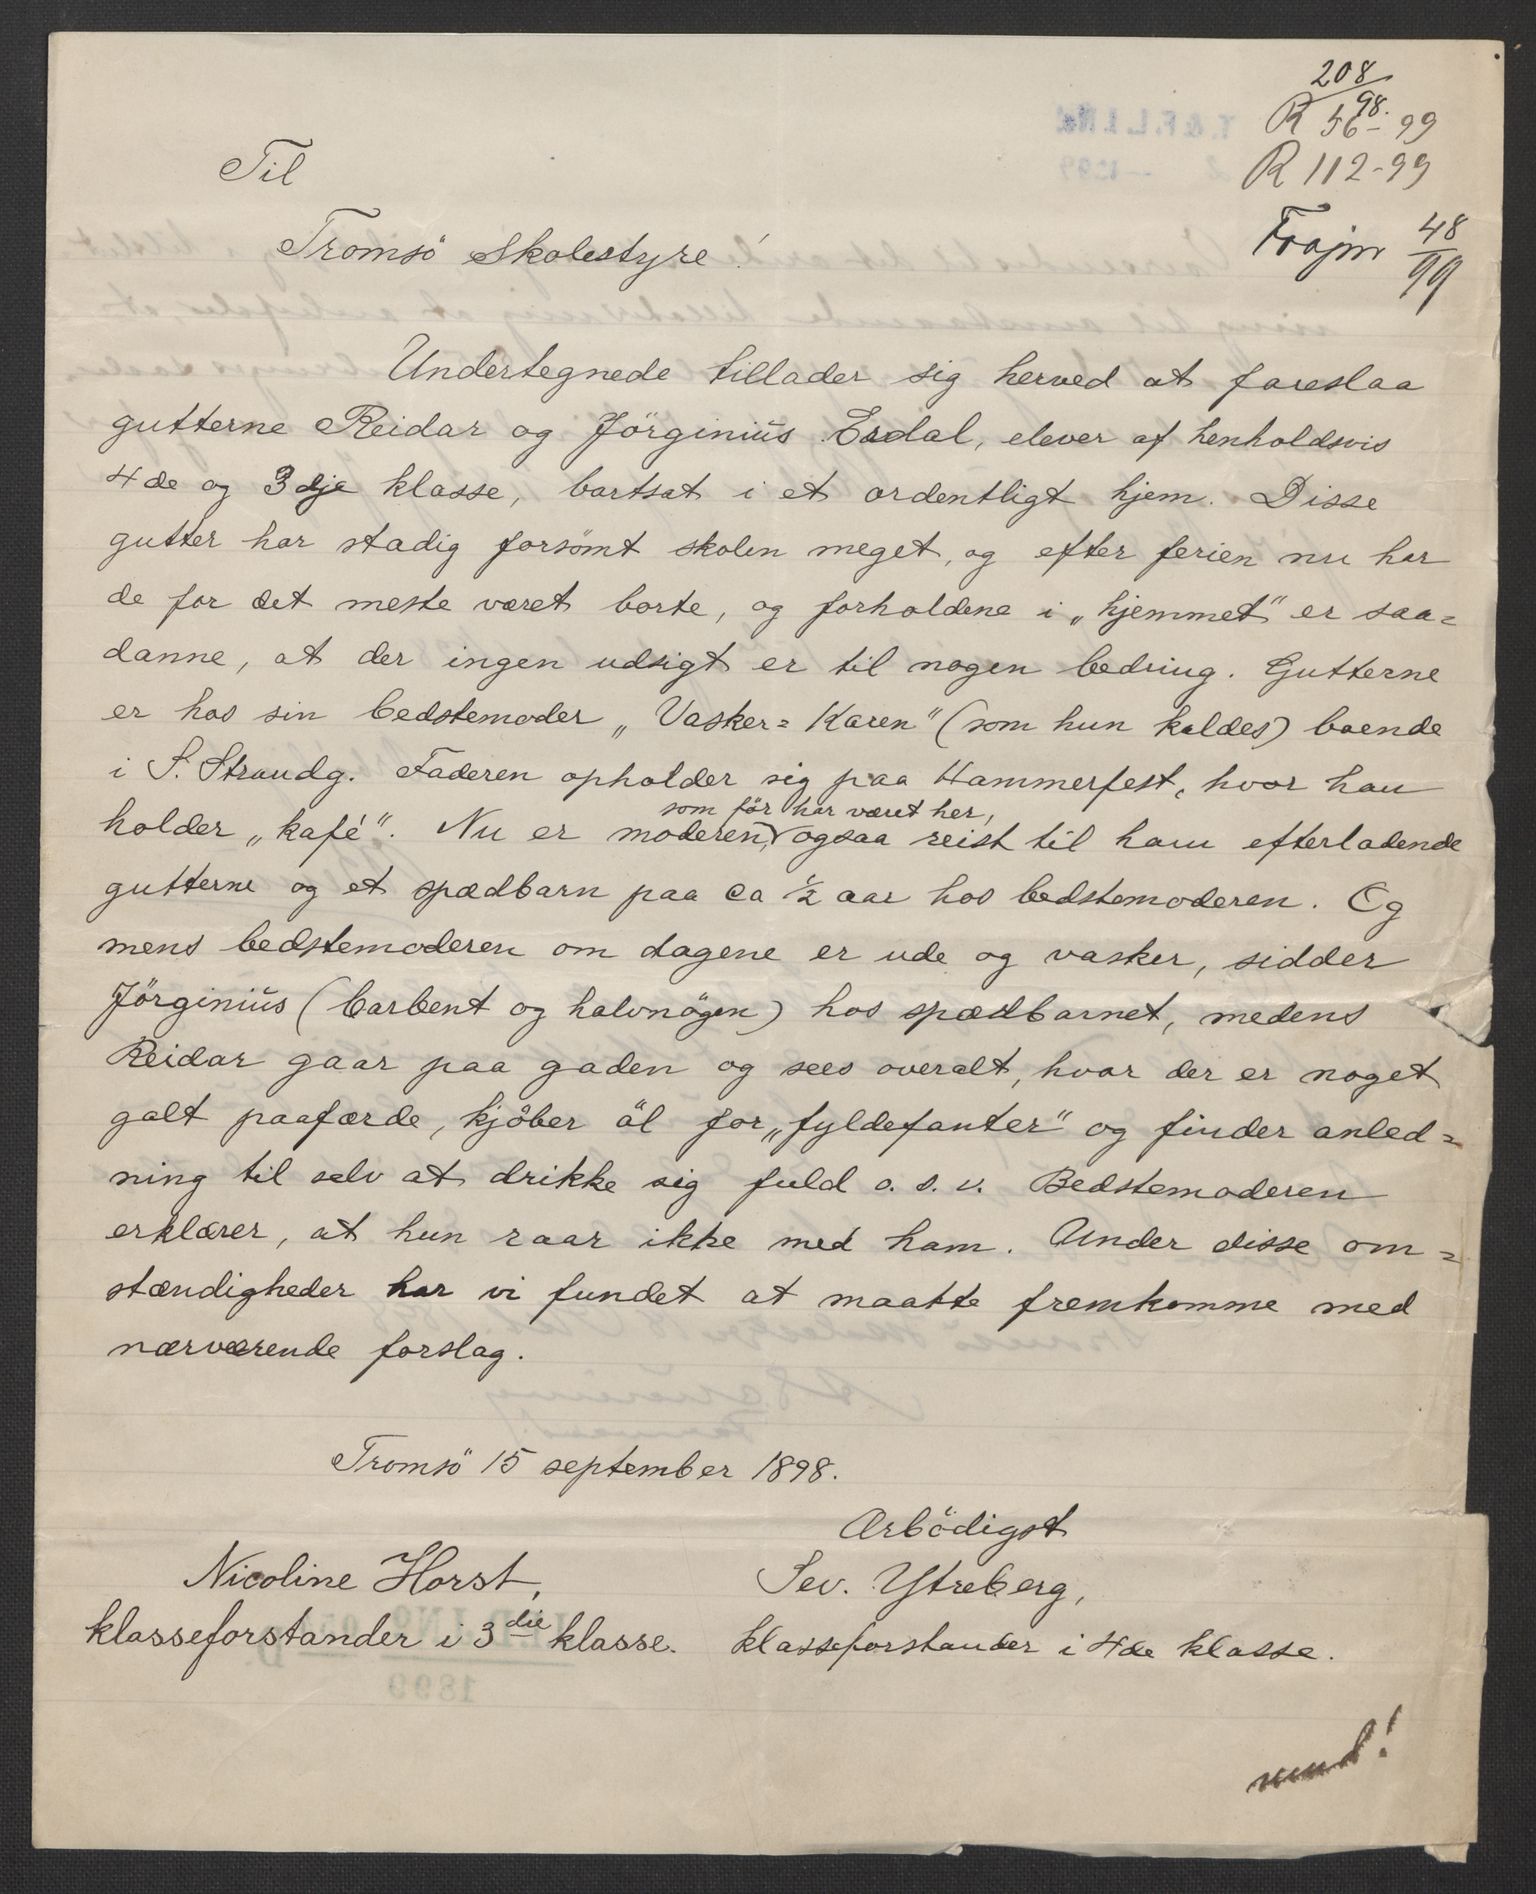 208
98.
R 56-99
R 112-99
Til
Tromsö Skolestyre!
48
99
Undertegnede tillader sig herved at foreslaa
gutterne Reidar og Jörginius Esdal, elever af henholdsvis
4de og 3dje klasse, bortsat i et ordentligt hjem. Disse
gutter har stadig forsömt skolen meget, og efter ferien nu har
de for det meste været borte, og forholdene i „hjemmet" er saa=
danne, at der ingen udsigt er til nogen bedring. Gutterne
er hos sin bedstemoder „Vasker=Karen" (som hun kaldes) boende
i S. Strandg. Faderen opholder sig paa Hammerfest, hvor han
som för har været her,
holder „kafé". Nu er moderen, ogsaa reist til ham efterladende
gutterne og et spædbarn paa ca ½ aar hos bedstemoderen. Og
mens bedstemoderen om dagene er ude og vasker, sidder
Jörginius (barbent og halvnögen) hos spædbarnet, medens
Reidar gaar paa gaden og sees overalt, hvor der er noget
galt paafærde, kjöber öl for „fyldefanter" og finder anled=
ning til selv at drikke sig fuld o. s. v. Bedstemoderen
erklærer, at hun raar ikke med ham. Under disse om=
stændigheder har vi fundet at maatte fremkomme med
nærværende forslag.
Tromsö 15 september 1898.
Ærbödigst
Nicoline Horst,
klasseforstander i 3die klasse.
Sev. Ytreberg,
klasseforstander i 4de klasse.
vend!